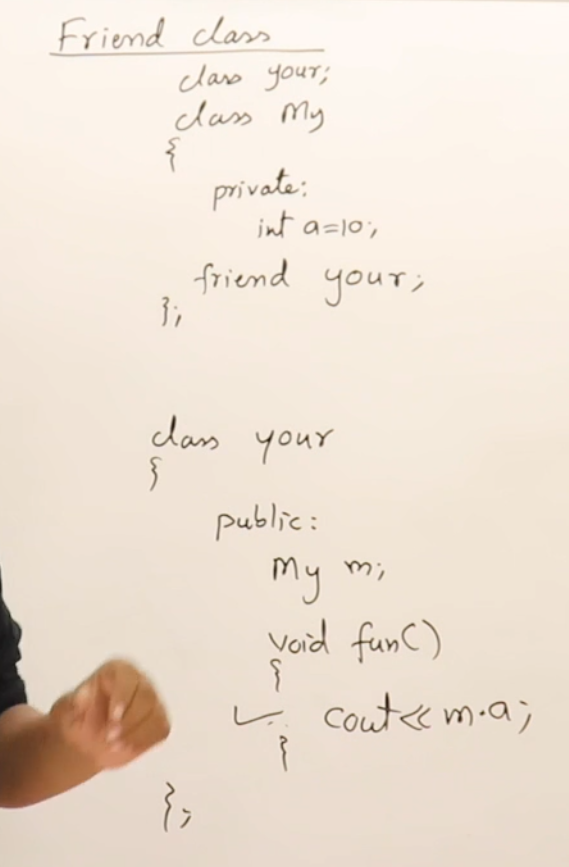 Friend class
class your;
class My
{
private:
int a=10;
friend your;
};
class your
{
public:
My m;
void fun()
{
cout<<m.a;
}
};